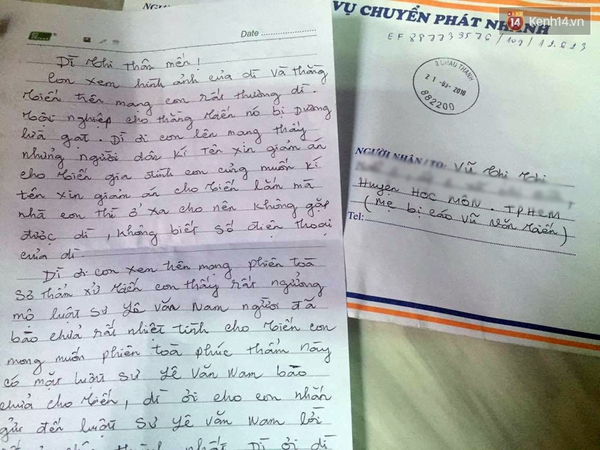 Date
Dì Thi Thân mến!
Con xem hình ảnh của dì và thằng
Tiến trên mạng con rất thương dì.
Tội nghiệp cho thằng Tiến nó bị Dương
lừa gạt. Dì ơi con lên mạng thấy
những người dân kí tên xin giảm án
cho Tiến gia đình con cũng muốn kí
tên xin giảm án cho Tiến lắm mà
nhà con thì ở xa cho nên không gặp
được dì, không biết số điện thoại
của dì.
Dì ơi con xem trên mạng phiên toà
Sơ thẩm xử Tiến con thấy rất ngưỡng
mộ luật sư Lê Văn Nam người đã
bào chữa rất nhiệt tình cho Tiến con
mong muốn phiên toà phúc thẩm này
có mặt luật sư Lê Văn Nam bào
chữa cho Tiến, dì ơi cho con nhắn
gửi đến luật sư Lê Văn Nam lời
nhất. Dì ơi dì
VỤ CHUYỂN PHÁT NHANH
14 Kênh14.vn
CHÂU THÀNH
2016
882200
NGƯỜI NHẬN/TO: Vũ Thi Thi
Huyện HOC MÔN. TPHCM
Tel: (mẹ bị cáo Vũ Văn Tiến)